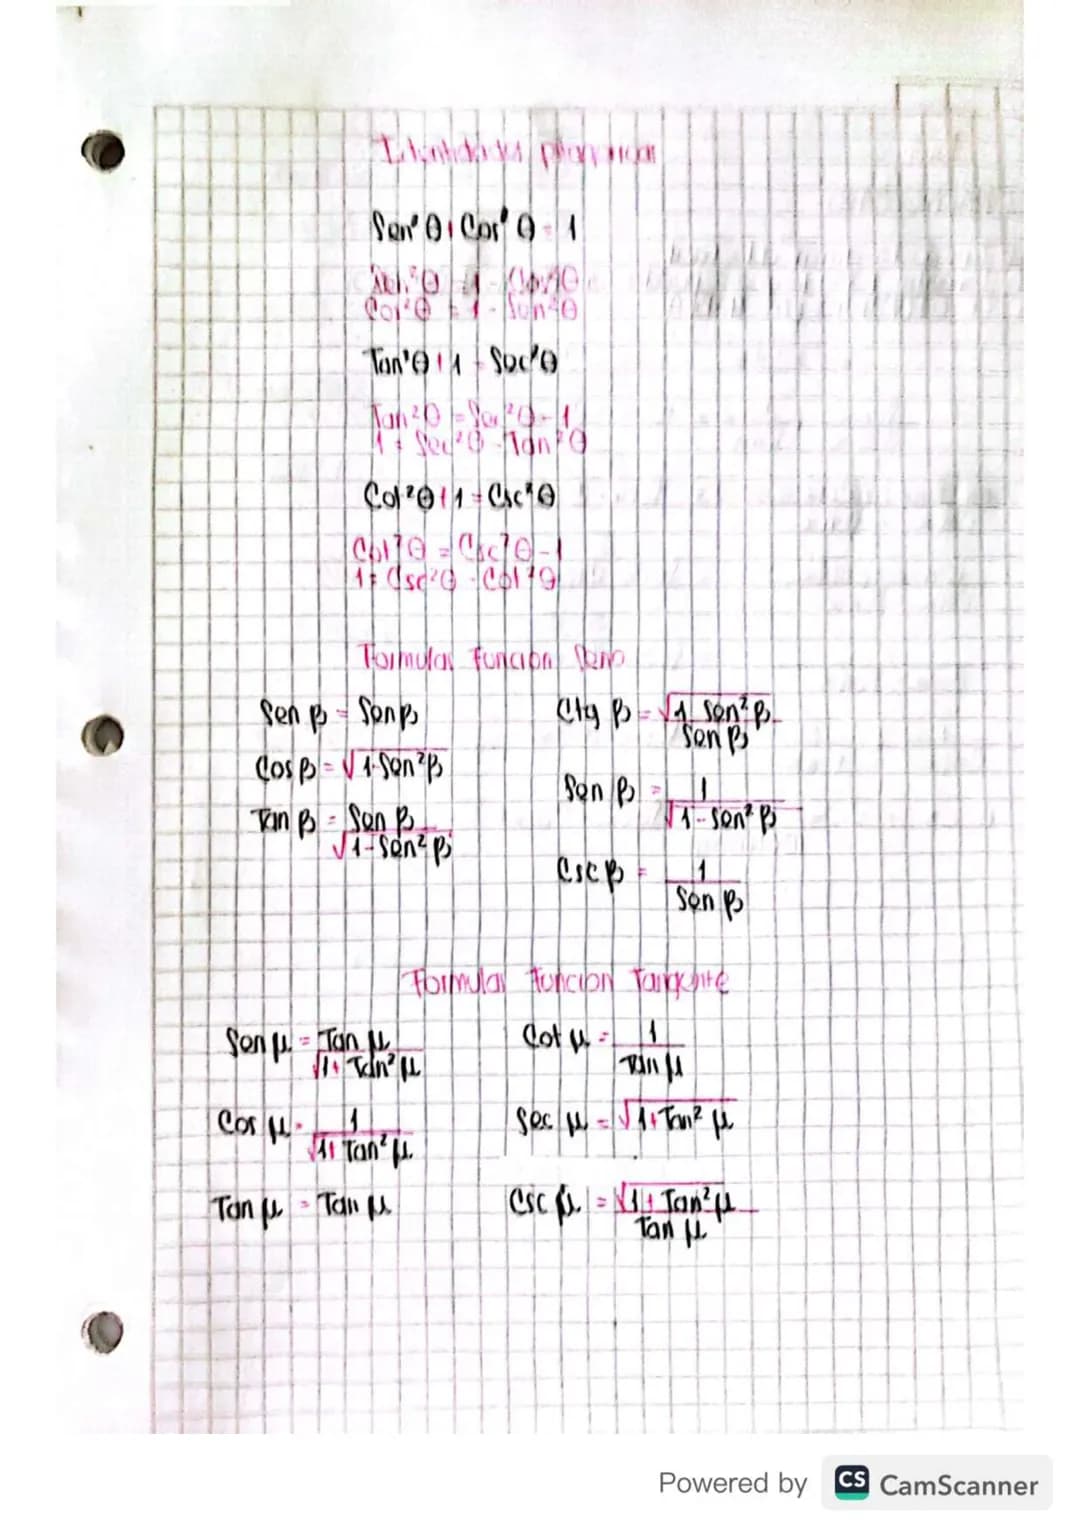 Identidades pitagoricas
Sen²θ+Cos²θ=1
Sen²θ=1-Cos²θ
Cos²θ=1-Sen²θ
Tan²θ+1=Sec²θ
Tan²θ=Sec²θ-1
1=Sec²θ-Tan²θ
Cot²θ+1=Csc²θ
Cot²θ=Csc²θ-1
1=Csc²θ-Cot²θ
Formulas funcion Seno
Sen β = Sen β
Cos β = √1-Sen²β
Tan β = Sen β
√1-Sen²β
Ctg β = √1-Sen²β
Sen β
Sen β = 1
√1-Sen²β
Csc β = 1
Sen β
Formulas funcion Tangente
Sen μ = Tan μ
√1+Tan²μ
Cos μ = 1
√1+Tan²μ
Tan μ = Tan μ
Cot μ = 1
Tan μ
Sec μ = √1+Tan²μ
Csc μ = √1+Tan²μ
Tan μ
Powered by CS CamScanner